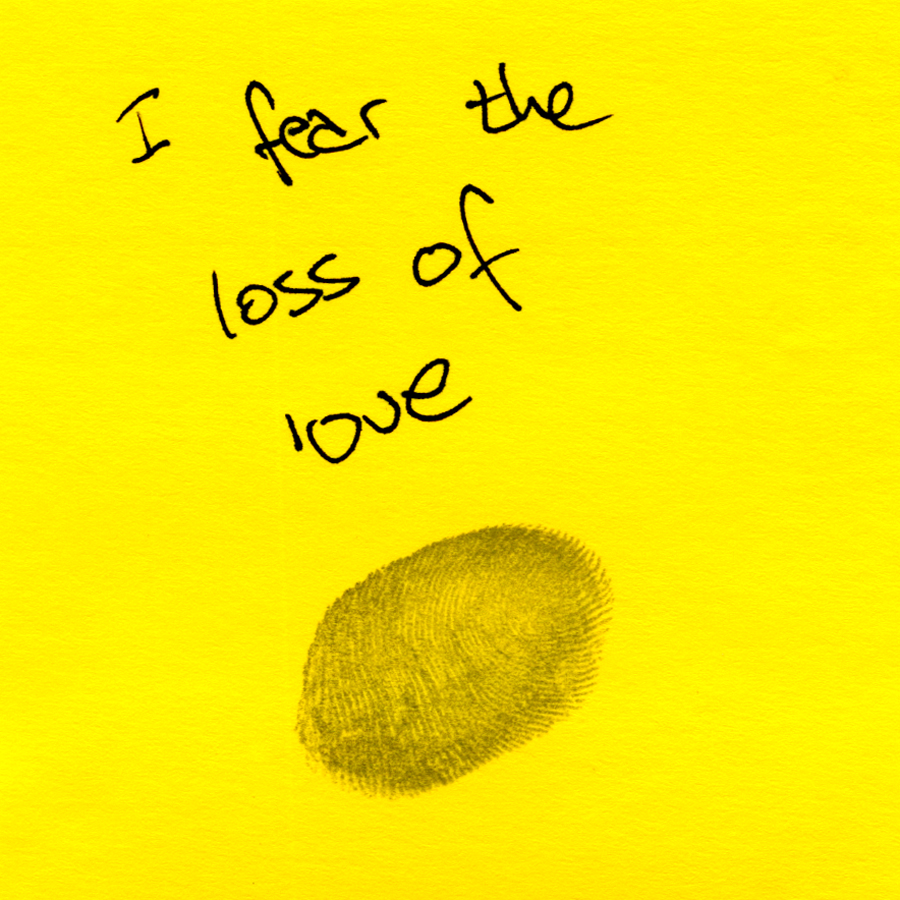 I fear the
loss of
love